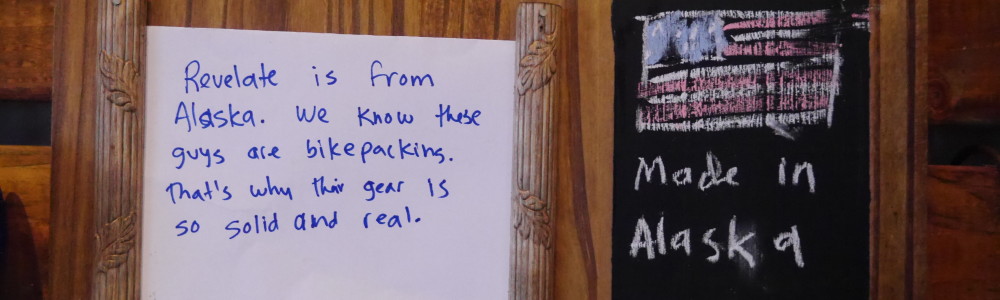 Revelate is from
Alaska. We know these
guys are bikepacking.
That's why their gear is
so solid and real.
Made in
Alaska